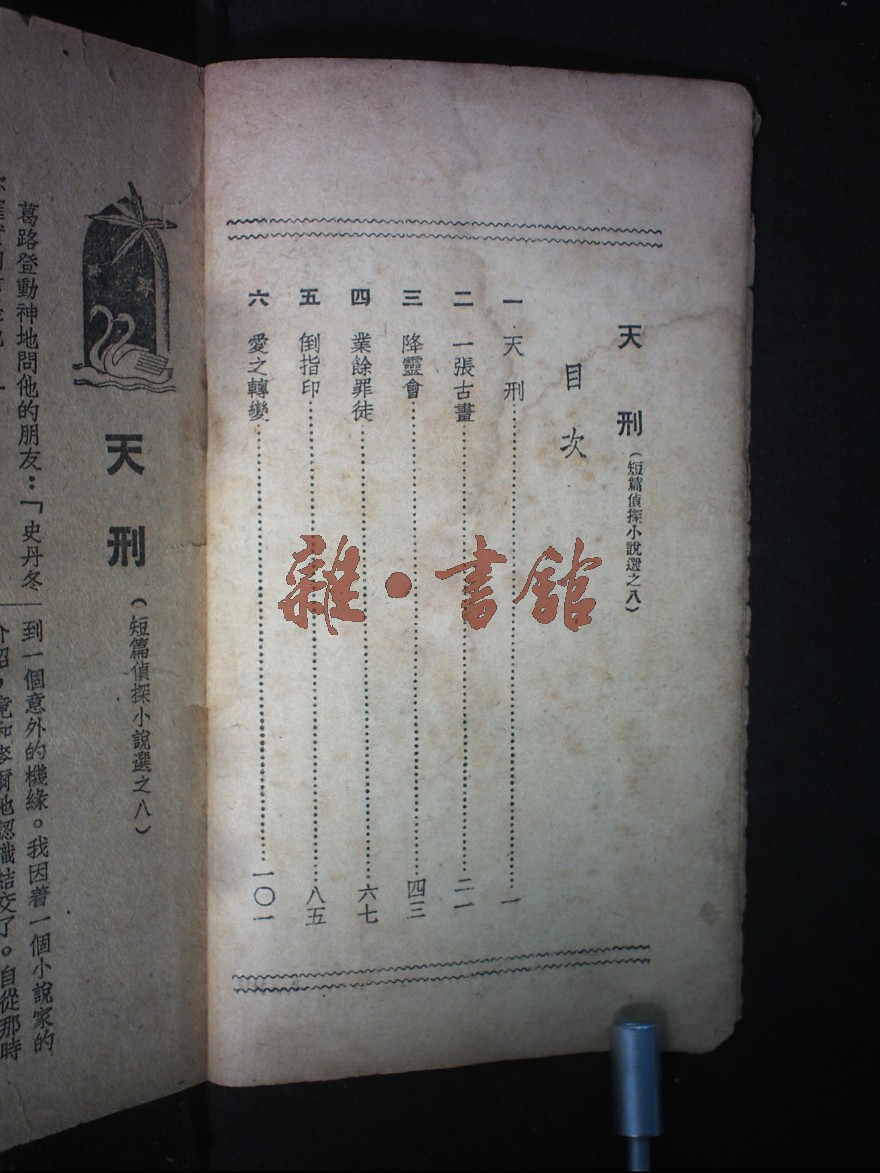 天刑（短篇偵探小說選之八）
目次
一 天刑……一
二 一張古畫……二一
三 降靈會……四三
四 業餘罪徒……六七
五 倒指印……八五
六 愛之轉變……一〇一
雜·書館
天刑（短篇偵探小說選之八）
葛路登動神地問他的朋友：「史丹冬
到一個意外的機緣。我因着一個小說家的
介紹，竟和麥爾他認識結交了。自從那時